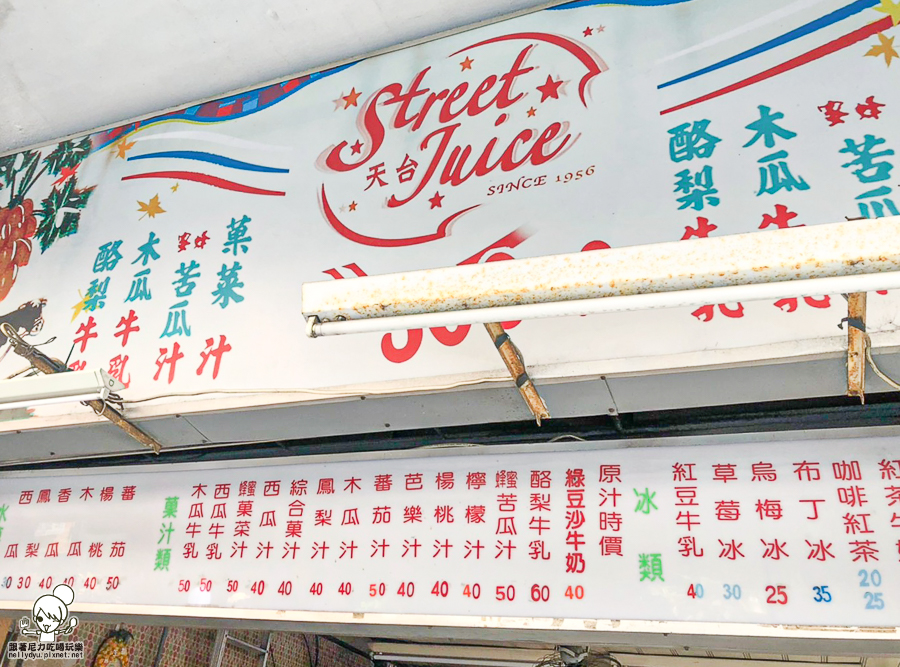 Street
Juice
天台
SINCE 1956
酪梨牛乳
木瓜牛乳
蜜蜂苦瓜汁
菓菜汁
酪梨牛乳
木瓜牛乳
蜜蜂苦瓜
西瓜 30
鳳梨 30
香瓜 40
木瓜 40
楊桃 40
蕃茄 50
菓汁類
木瓜牛乳 50
西瓜牛乳 50
蜂蜜菓菜汁 50
西瓜汁 40
綜合菓汁 40
鳳梨汁 40
木瓜汁 40
蕃茄汁 50
芭樂汁 40
楊桃汁 40
檸檬汁 40
蜂蜜苦瓜汁 50
酪梨牛乳 60
綠豆沙牛奶 40
原汁時價
冰類
紅豆牛乳 40
草莓冰 30
烏梅冰 25
布丁冰 35
咖啡紅茶 20 25
紅茶牛
跟著尼力吃喝玩樂
nellydyu.pixnet.net